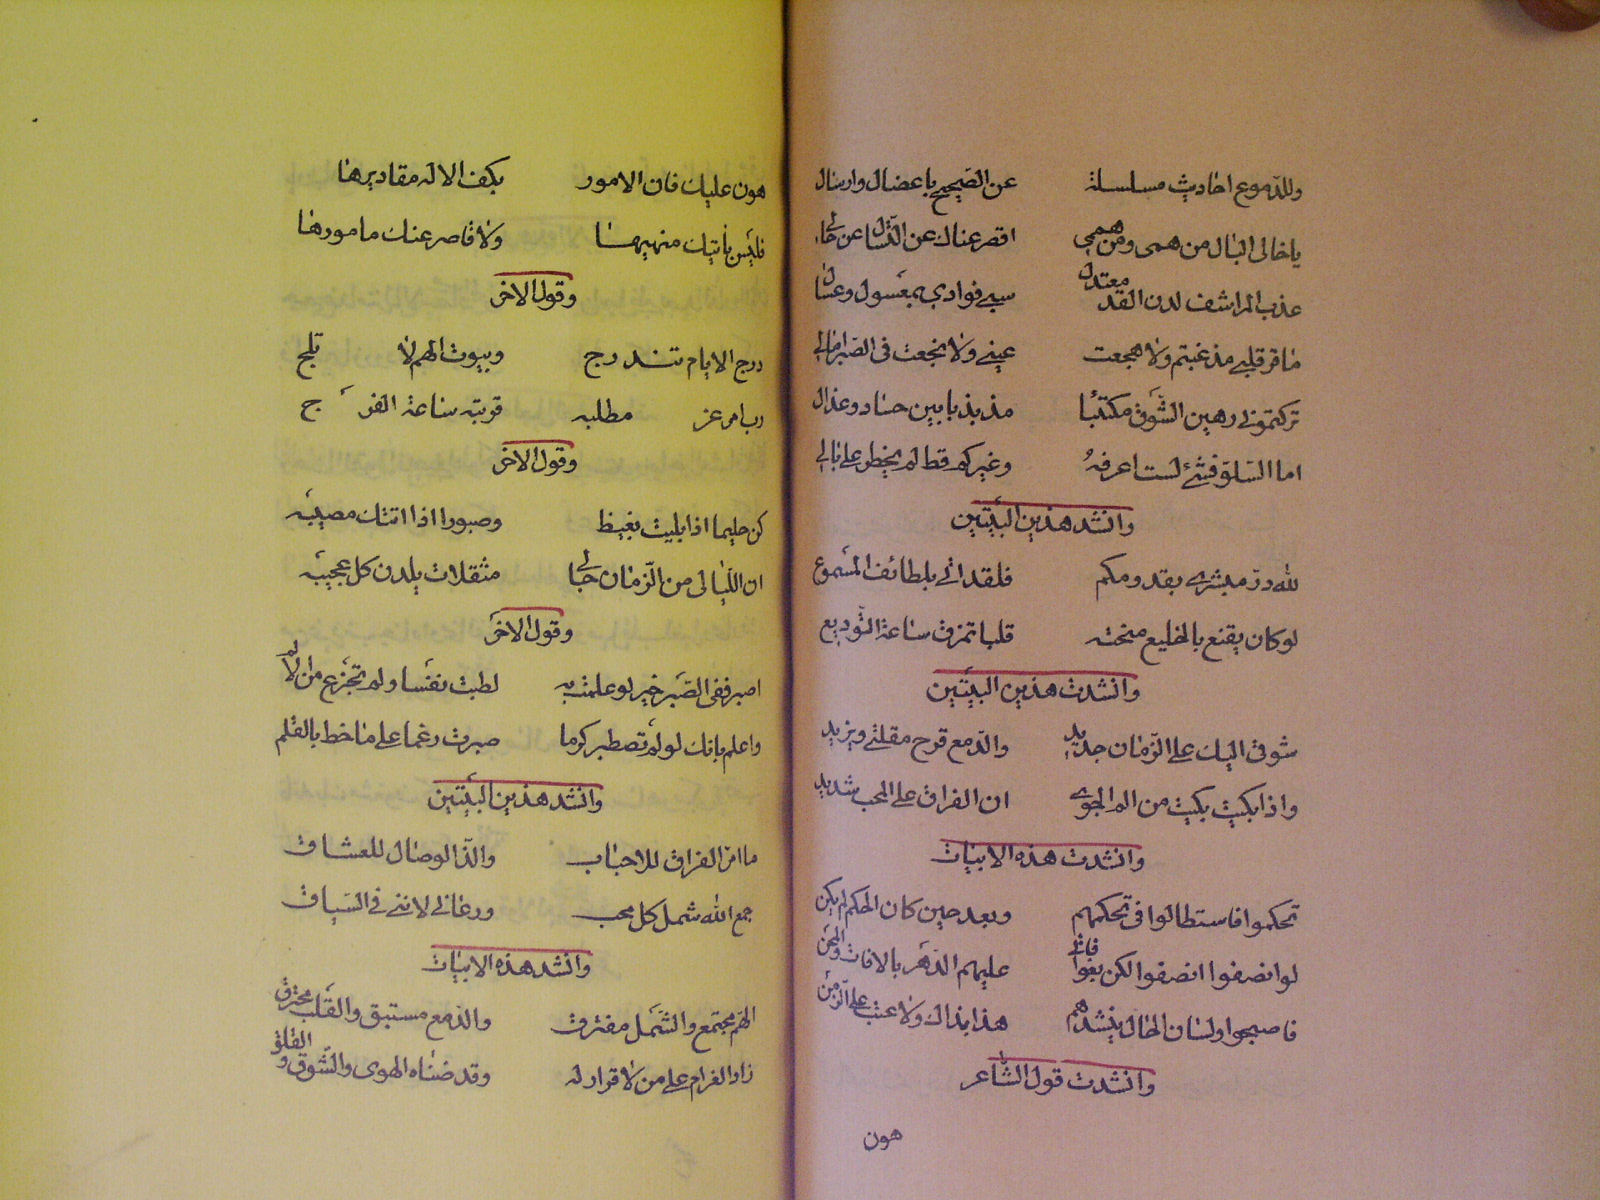 وللدموع احاديث مسلسلة عن الصحيح باعضال وارسال
ياخالى البال من همى ومن هممي اقصر عناك عن التسال عن حالي
عذب المراشف لدن القد معتدل سبى فوادي بمعسول وعسال
ماقر قلبي مذ غبتم ولا هجعت عيني ولا نجعت فى الصبر امالي
تركتموني رهين الشوق مكتئبا مذبذبا بين حساد وعذال
اما السلو فشئ لست اعرفه وغيركم قط لم يخطر على بالي
وانشد هذين البيتين
لله در مبشري بقدومكم فلقد اتى بلطائف المسموع
لو كان يقنع بالخليع منحته قلبا تمزق ساعة التوديع
وانشدت هذين البيتين
شوقى اليك على الزمان جديد والدمع قرح مقلتي ويزيد
واذا بكيت بكيت من الم الجوى ان الفراق على المحب شديد
وانشدت هذه الابيات
تحكموا فاستطالوا فى تحكمهم وبعد حين كان الحكم لم يكن
لو انصفوا انصفوا لكن بغوا فاتى عليهم الدهر بالافات والمحن
فاصبحوا ولسان الحال ينشدهم هذا بذاك ولا عتب على الزمن
وانشدت قول الشاعر
هون
هون عليك فان الامور بكف الاله مقاديرها
فليس ياتيك منهيها ولا قاصر عنك مامورها
وقول الاخر
درج الايام تندرج وبيوت الهم لا تلج
رب امر عز مطلبه قربته ساعة الفرج
وقول الاخر
كن حليما اذا بليت بغيظ وصبورا اذا اتتك مصيبه
ان الليالى من الزمان حبالى مثقلات يلدن كل عجيبه
وقول الاخر
اصبر ففى الصبر خير لو علمت به لطبت نفسا ولم تجزع من الالم
واعلم بانك لو لم تصطبر كرما صبرت رغما على ما خط بالقلم
وانشد هذين البيتين
ما امر الفراق للاحباب والذ الوصال للعشاق
جمع الله شمل كل محب ورعانى لاننى فى السياق
وانشد هذه الابيات
الهم مجتمع والشمل مفترق والدمع مستبق والقلب محترق
زاد الغرام على من لا قرار له وقد ضناه الهوى والشوق والقلق